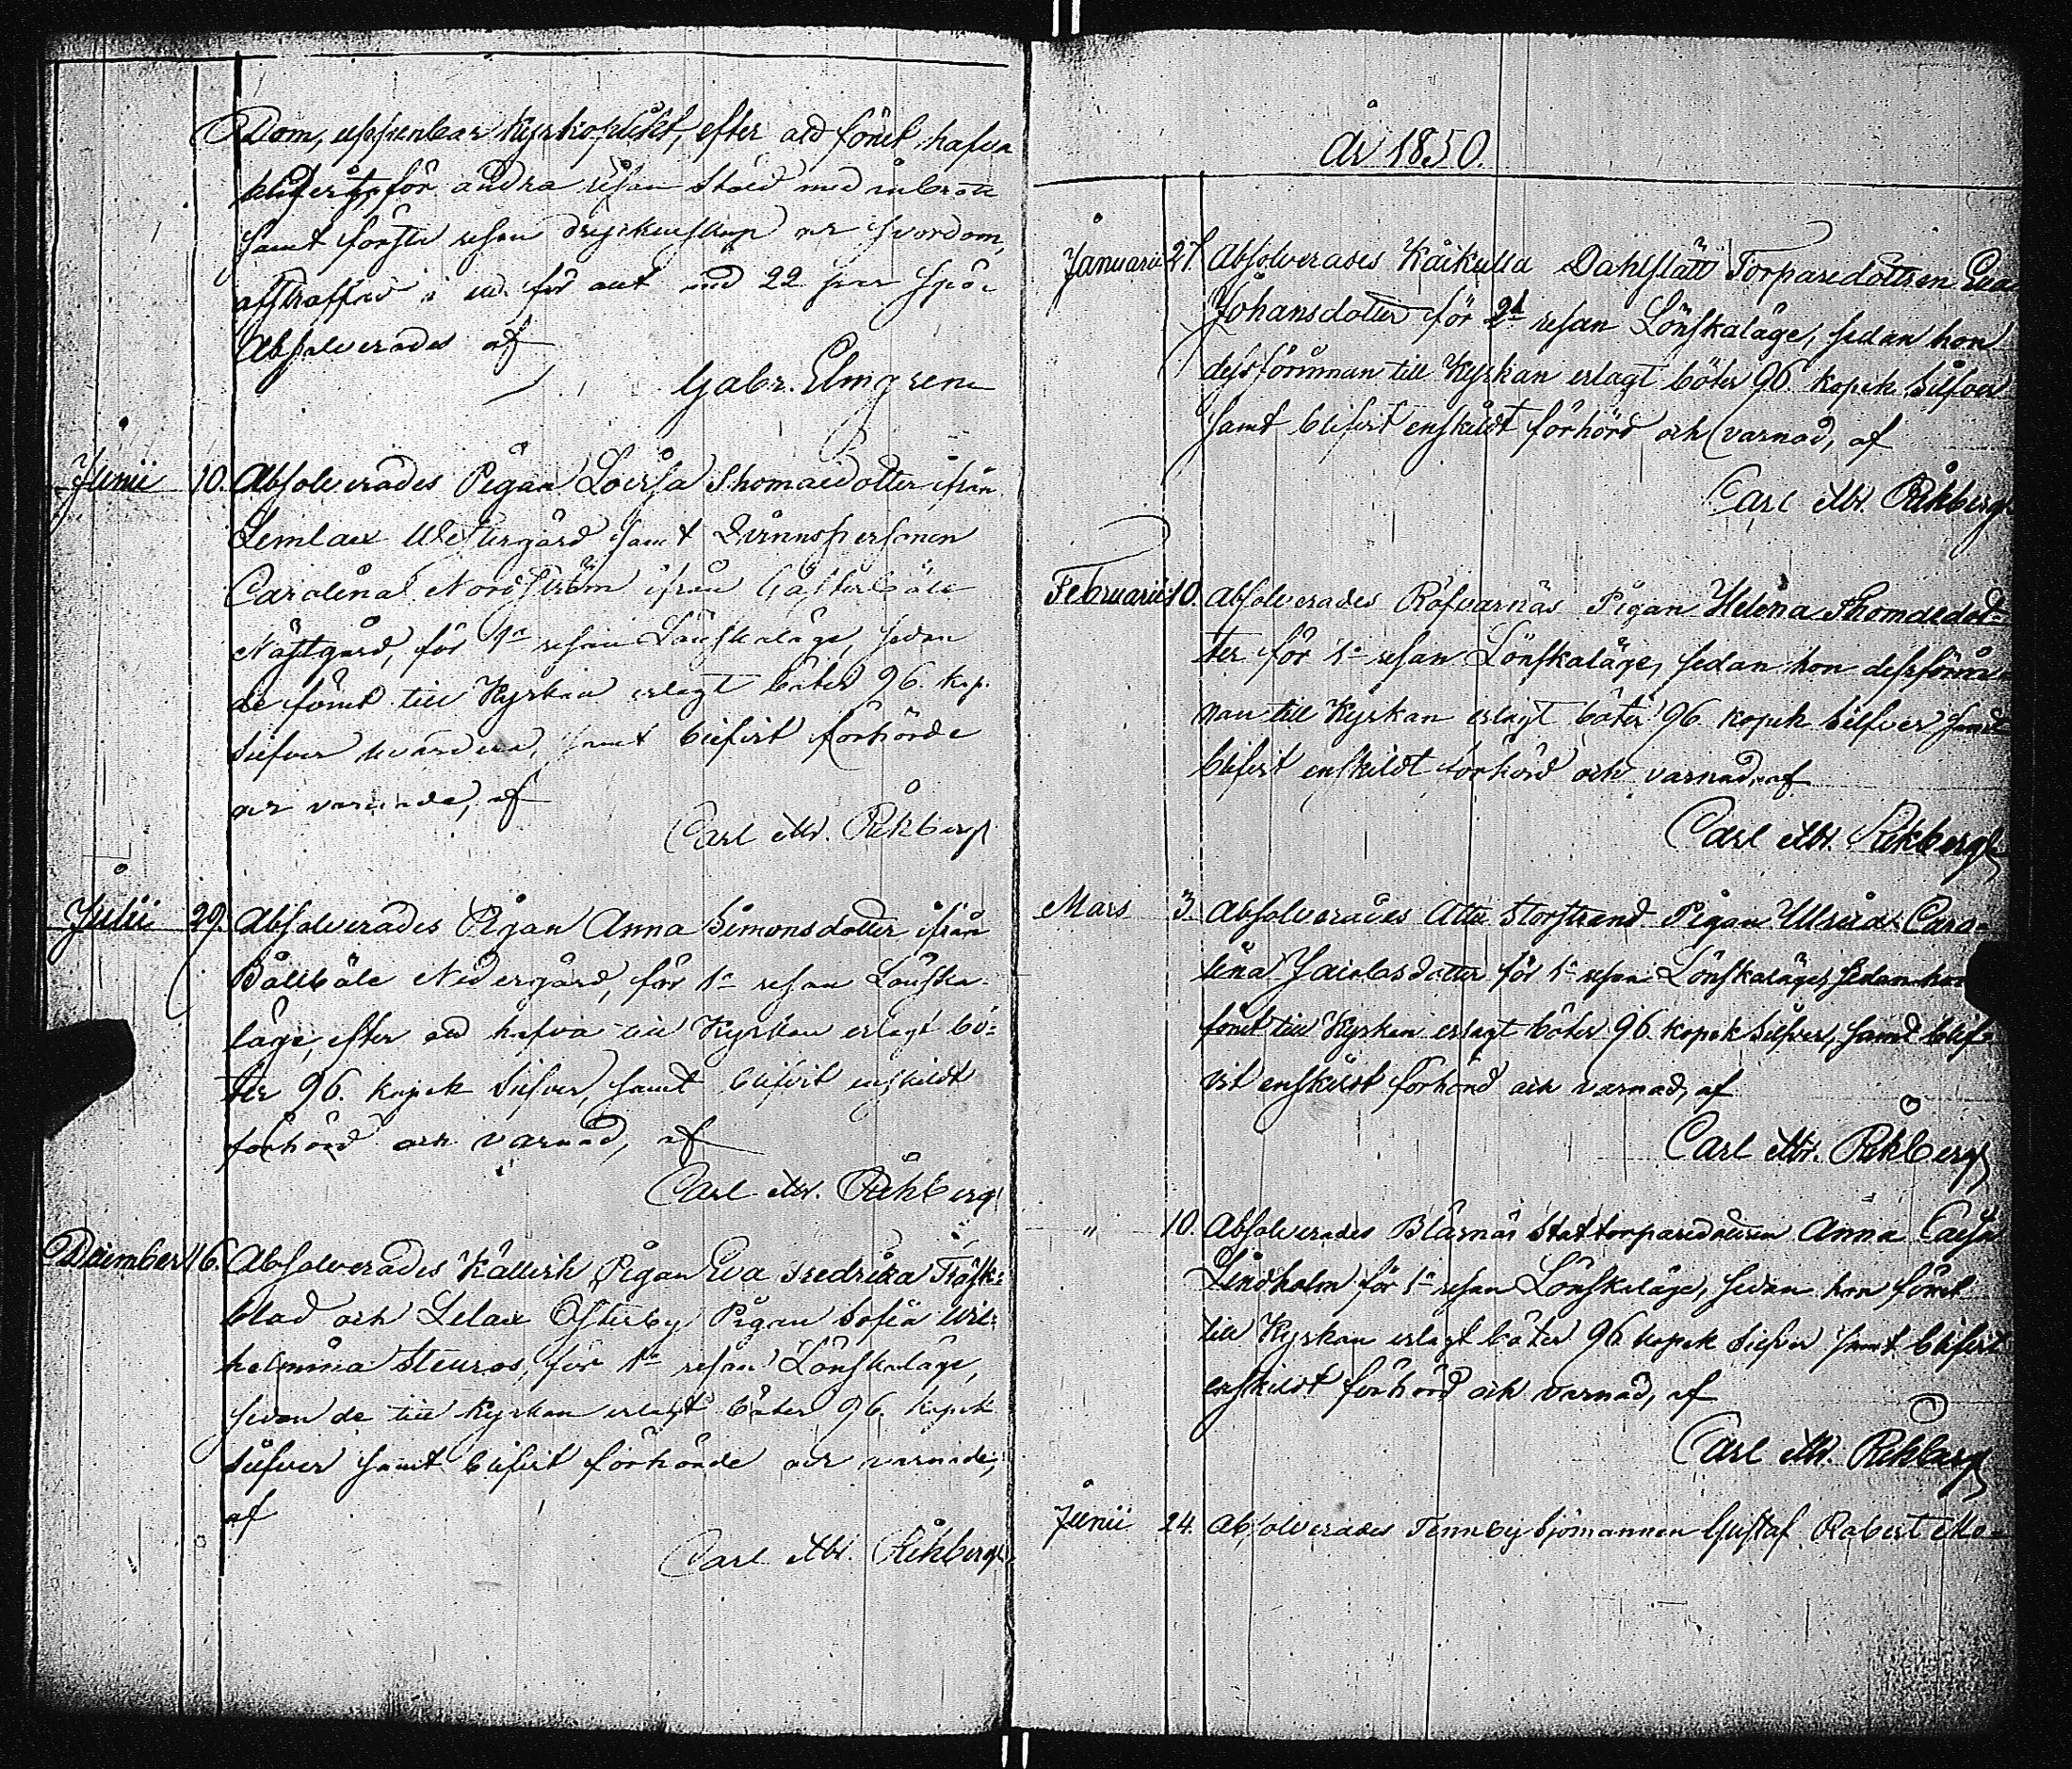 Dom, uppenbar Kyrkoplikt, efter att förut hafva
blifvit för andra resan stöld med inbrott
samt första resan dryckenskap och svordom,
afstraffad med 22 par spö,
Absolverades af
Gabr. Elmgren
Junii 10. Absolverades Pigan Lovisa Thomaedotter ifrån
Lemlax Westergård samt Qvinnspersonen
Carolina Nordström ifrån
Nästgård, för 1a resan Lönskaläge, sedan
de förut till Kyrkan erlagt böter 96. kop.
silfver hvardera, samt blifvit förhörde
och varnade, af
Carl Mr. Råkberg
Julii 29. Absolverades Pigan Anna Simonsdotter ifrån
Bållböle Nedergård, för 1a resan Lönska-
läge, efter att hafva till Kyrkan erlagt bö-
ter 96. kopek silfver, samt blifvit enskildt
förhörd och varnad, af
Carl Mr. Råkberg
December 16. Absolverades Källvik Pigan Eva Fredrika Träsk-
blad och Lelax Österby Pigan Sofia Wil-
helmina Stenros, för 1a resan Lönskaläge,
sedan de till Kyrkan erlagt böter 96. kopek
silfver samt blifvit förhörde och varnade,
af
Carl Mr. Råkberg
År 1850.
Januarii 27. Absolverades Kåikulla Dahlslätt Torparedottren Eva
Johansdotter för 2a resan Lönskaläge, sedan hon
dessförinnan till Kyrkan erlagt böter 96. kopek silfver
samt blifvit enskildt förhörd och varnad, af
Carl Mr. Råkberg
Februarii 10. Absolverades Räfvarnäs Pigan Helena Thomaedot-
ter för 1a resan Lönskaläge, sedan hon dessförin-
nan till Kyrkan erlagt böter 96. kopek silfver samt
blifvit enskildt förhörd och varnad, af
Carl Mr. Råkberg
Mars 3. Absolverades Attu Storstrand Pigan Ulrica Caro-
lina Jacobsdotter för 1a resan Lönskaläge, sedan hon
förut till Kyrkan erlagt böter 96. kopek silfver, samt blif-
vit enskildt förhörd och varnad, af
Carl Mr. Råkberg
" 10. Absolverades Blåsnäs Stattorparedottren Anna Caisa
Lindholm för 1a resan Lönskaläge, sedan hon förut
till Kyrkan erlagt böter 96 kopek silfver samt blifvit
enskildt förhörd och varnad, af
Carl Mr. Råkberg
Junii 24. Absolverades Tennby Sjömannen Gustaf Robert Mo-